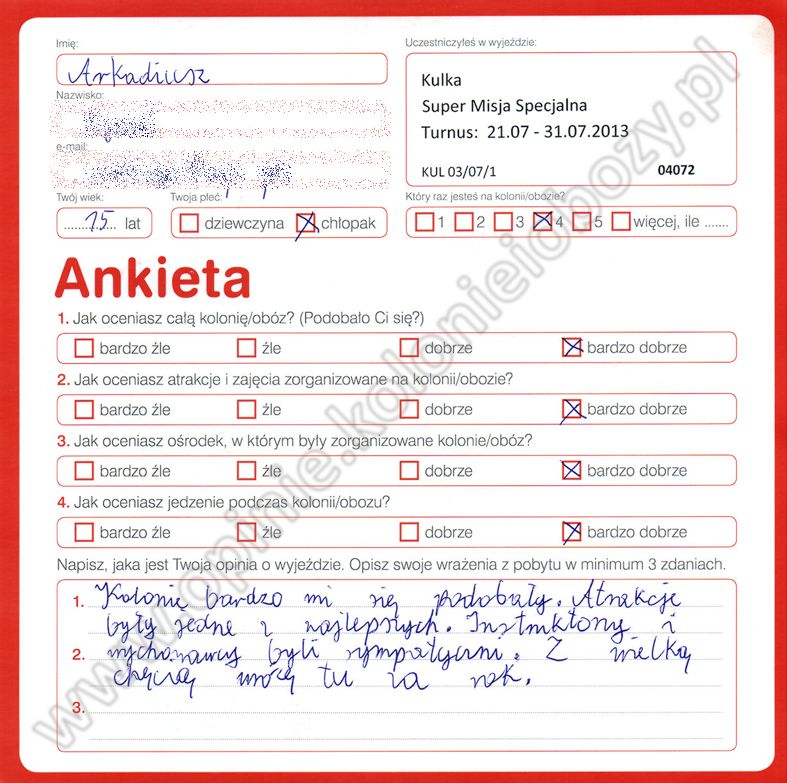 Imię:
Arkadiusz
Nazwisko:
e-mail:
Twój wiek:
15 lat
Twoja płeć:
dziewczyna chłopak
Uczestniczyłeś w wyjeździe:
Kulka
Super Misja Specjalna
Turnus: 21.07 - 31.07.2013
KUL 03/07/1 04072
Który raz jesteś na kolonii/obozie?
1 2 3 4 5 więcej, ile .......
Ankieta
1. Jak oceniasz całą kolonię/obóz? (Podobało Ci się?)
bardzo źle źle dobrze bardzo dobrze
2. Jak oceniasz atrakcje i zajęcia zorganizowane na kolonii/obozie?
bardzo źle źle dobrze bardzo dobrze
3. Jak oceniasz ośrodek, w którym były zorganizowane kolonie/obóz?
bardzo źle źle dobrze bardzo dobrze
4. Jak oceniasz jedzenie podczas kolonii/obozu?
bardzo źle źle dobrze bardzo dobrze
Napisz, jaka jest Twoja opinia o wyjeździe. Opisz swoje wrażenia z pobytu w minimum 3 zdaniach.
1. Kolonie bardzo mi się podobały. Atrakcje
były jedne z najlepszych. Instruktorzy i
2. wychowawcy byli sympatyczni. Z wielką
chęcią wrócę tu za rok.
3.
www.opinie.kolonieiobozy.pl